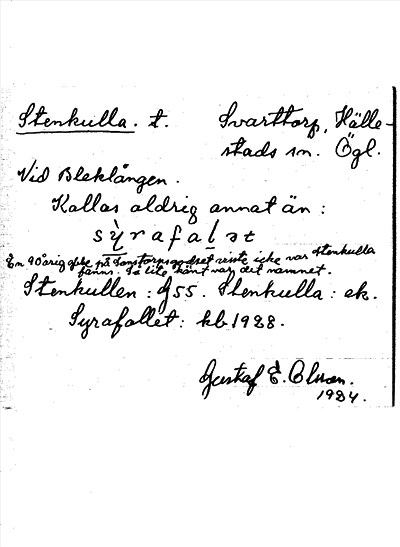 Stenkulla. t. Svarttorp, Hälle-
stads sn. Ögl.
Vid Bleklången.
Kallas aldrig annat än:
sỳrafalət
En 90årig på Sonstorpsgodset visste icke var Stenkulla
fanns. Så lite känt var det namnet.
Stenkullen: G55. Stenkulla: ek.
Syrafallet: kb 1928.
Gustaf E. Olsson.
1924.